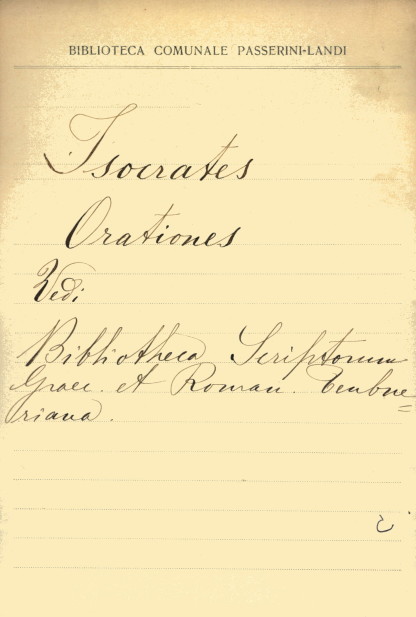 BIBLIOTECA COMUNALE PASSERINI-LANDI
Isocrates
Orationes
Vedi
Bibliotheca Scriptorum
Graec. et Roman. Teubne=
riana.